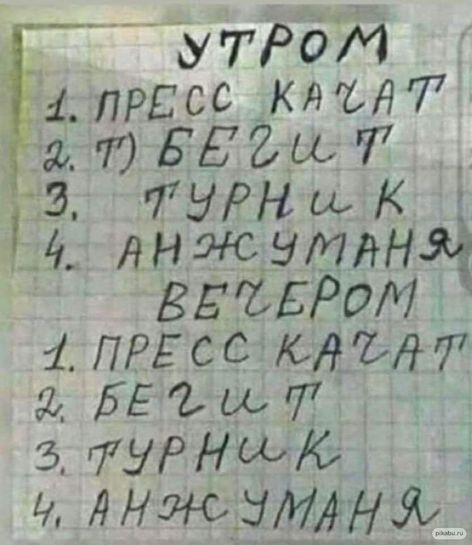 УТРОМ
1. ПРЕСС КАЧАТ
2. Т) БЕГИТ
3. ТУРНИК
4. АНЖУМАНЯ
ВЕЧЕРОМ
1. ПРЕСС КАЧАТ
2. БЕГИТ
3. ТУРНИК
4. АНЖУМАНЯ
pikabu.ru